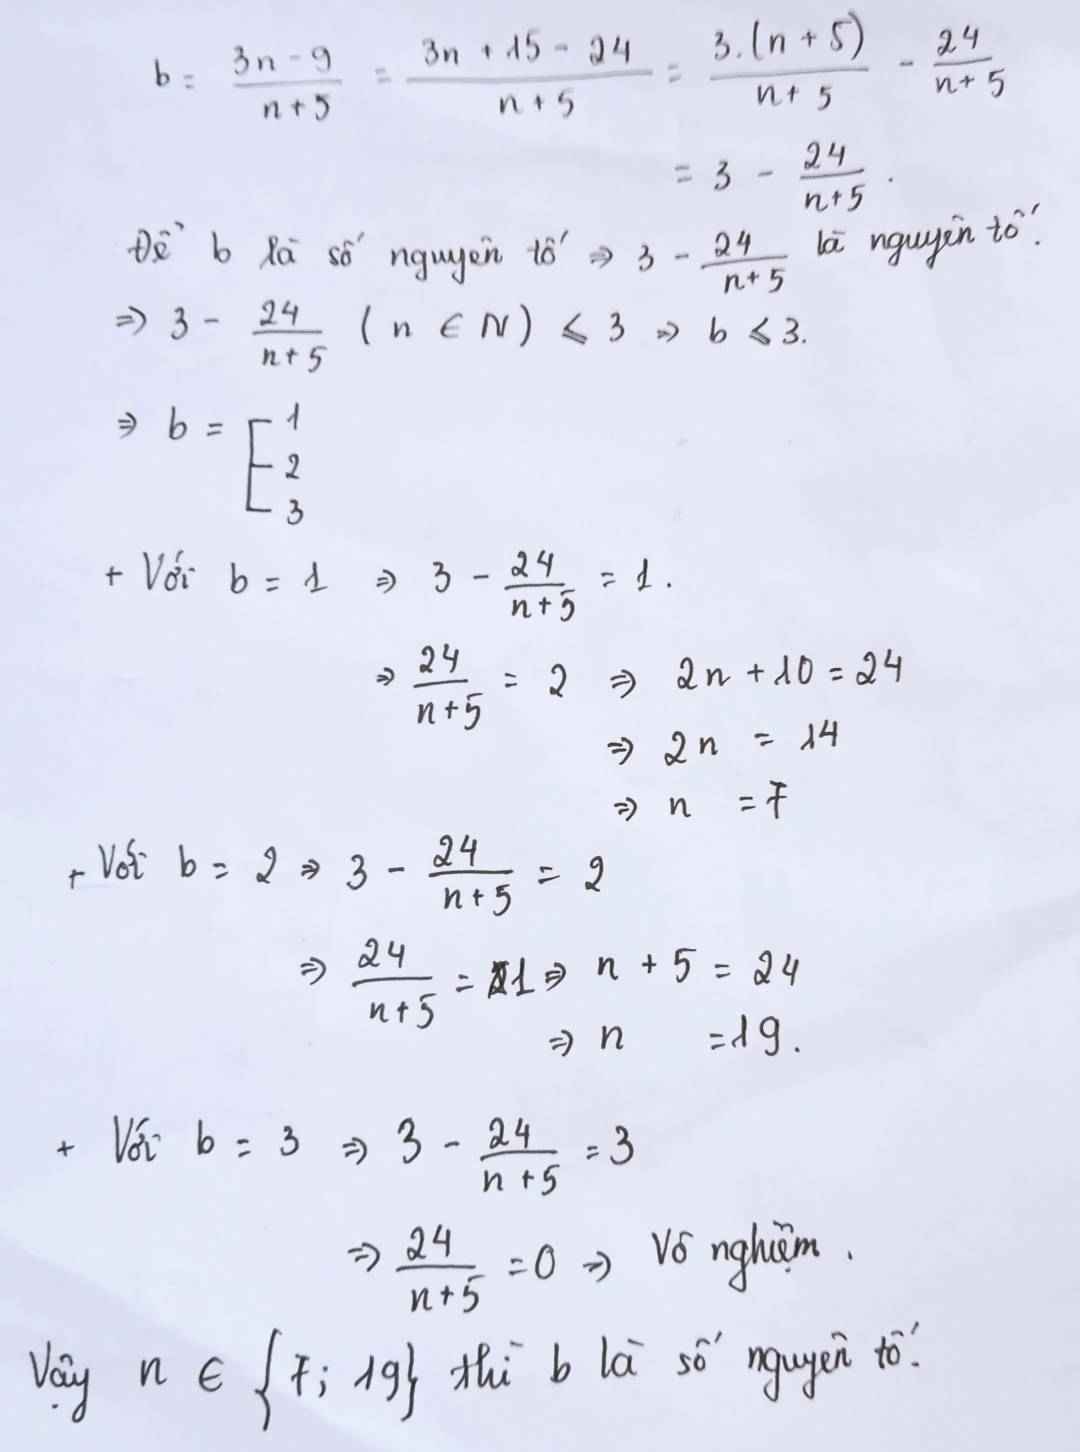 b = \frac{3n - 9}{n + 5} = \frac{3n + 15 - 24}{n + 5} = \frac{3.(n + 5)}{n + 5} - \frac{24}{n + 5}
= 3 - \frac{24}{n + 5}.
Để b là số nguyên tố ⇒ 3 - \frac{24}{n + 5} là nguyên tố.
⇒ 3 - \frac{24}{n + 5} (n ∈ N) ⩽ 3 ⇒ b ⩽ 3.
⇒ b = [ 1
2
3
+ Với b = 1 ⇒ 3 - \frac{24}{n + 5} = 1.
⇒ \frac{24}{n + 5} = 2 ⇒ 2n + 10 = 24
⇒ 2n = 14
⇒ n = 7
+ Với b = 2 ⇒ 3 - \frac{24}{n + 5} = 2
⇒ \frac{24}{n + 5} = 1 ⇒ n + 5 = 24
⇒ n = 19.
+ Với b = 3 ⇒ 3 - \frac{24}{n + 5} = 3
⇒ \frac{24}{n + 5} = 0 ⇒ Vô nghiệm.
Vậy n ∈ {7; 19} thì b là số nguyên tố.